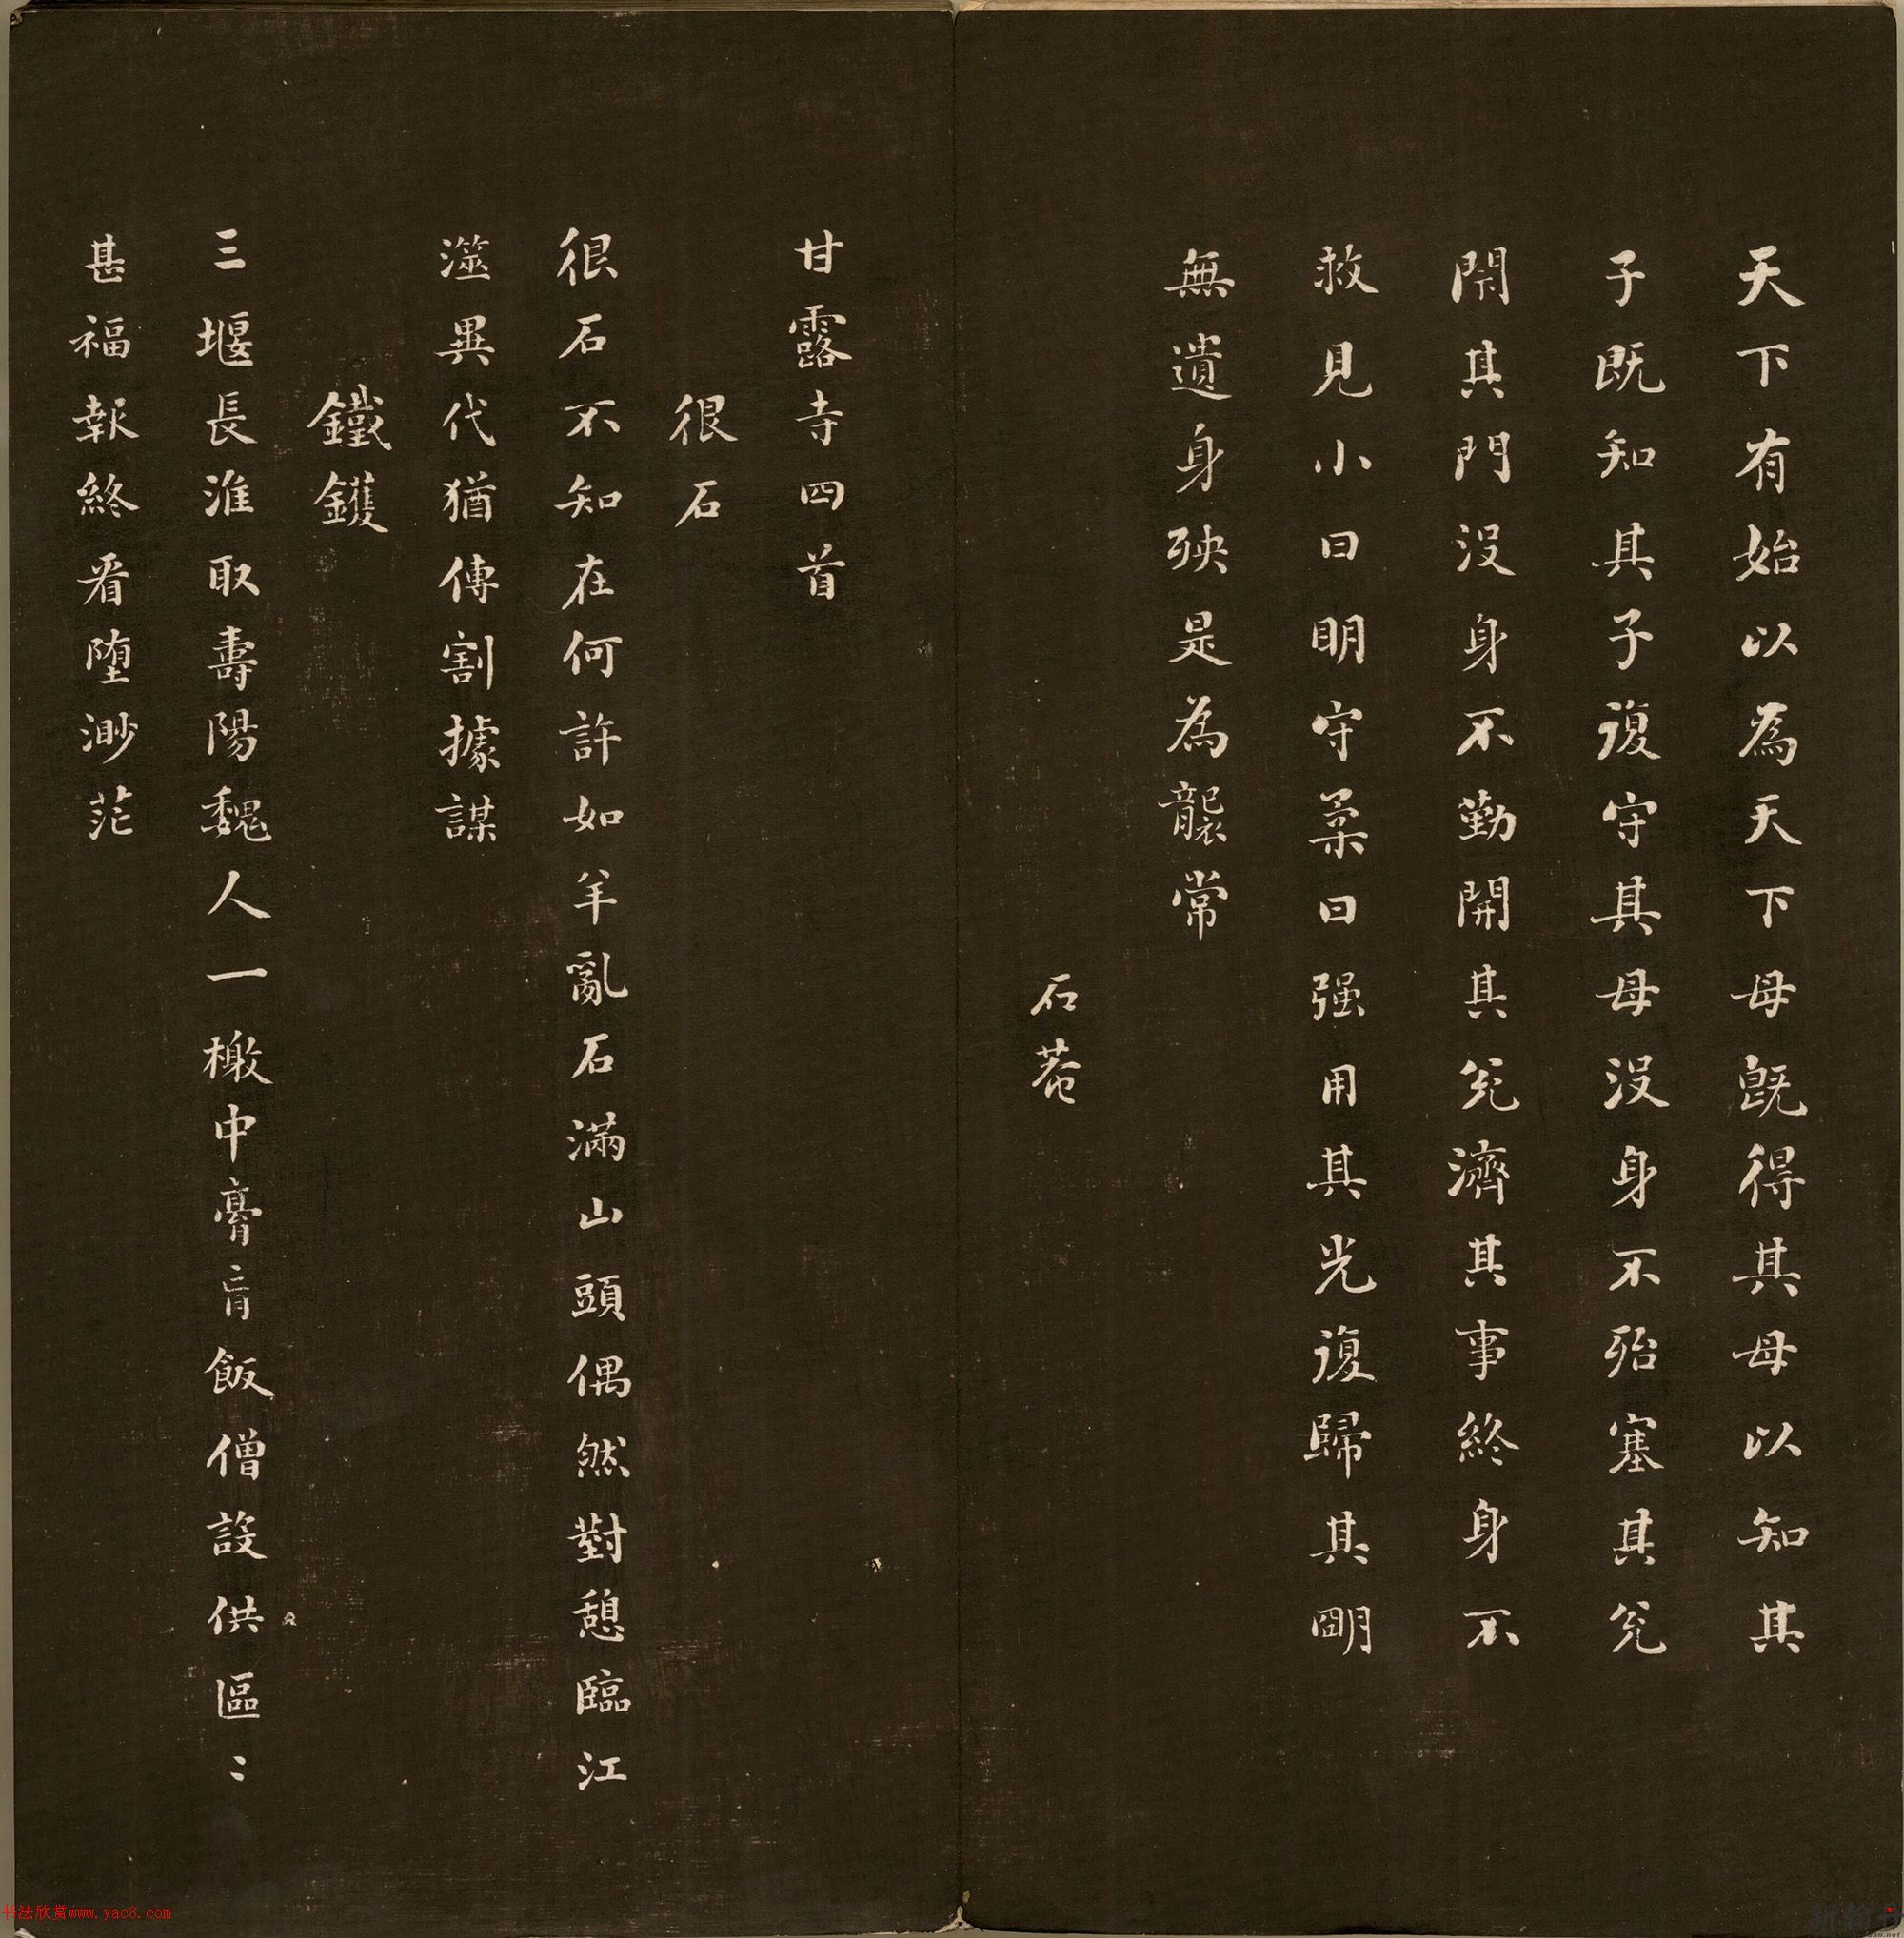 天下有始以為天下母既得其母以知其
子既知其子復守其母沒身不殆塞其兌
閉其門沒身不勤開其兌濟其事終身不
救見小曰明守柔曰强用其光復歸其明
無遺身殃是為襲常
石菴
甘露寺四首
很石
很石不知在何許如羊亂石滿山頭偶然對憩臨江
澨異代猶傳割據謀
鐵鑊
三堰長淮取壽陽魏人一檄中膏肓飯僧設供區〻
甚福報終看堕渺茫
书法欣赏www.yac8.com